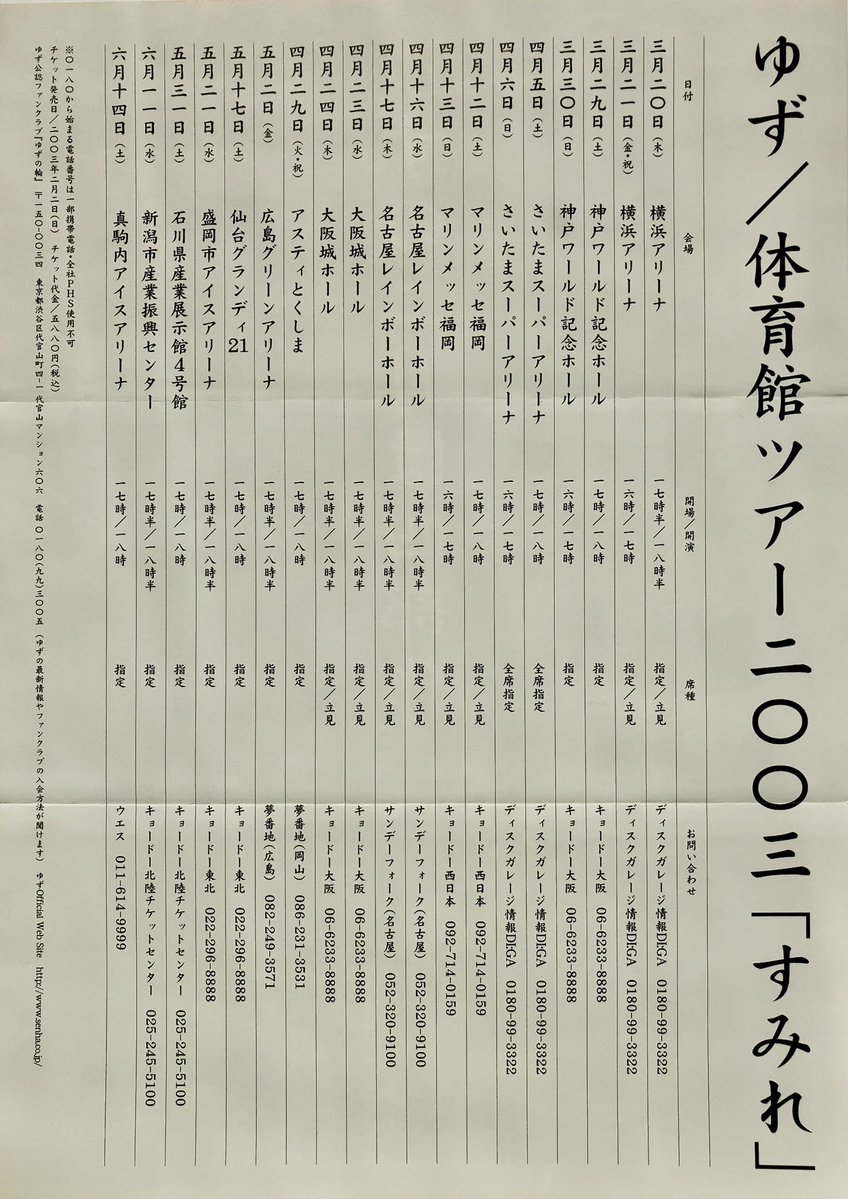 ゆず／体育館ツアー二〇〇三「すみれ」
日付 会場 開場／開演 席種 お問い合わせ
三月二〇日（木） 横浜アリーナ 一七時半／一八時半 指定／立見 ディスクガレージ情報DI:GA 0180-99-3322
三月二一日（金・祝） 横浜アリーナ 一六時／一七時 指定／立見 ディスクガレージ情報DI:GA 0180-99-3322
三月二九日（土） 神戸ワールド記念ホール 一七時／一八時 指定 キョードー大阪 06-6233-8888
三月三〇日（日） 神戸ワールド記念ホール 一六時／一七時 指定 キョードー大阪 06-6233-8888
四月五日（土） さいたまスーパーアリーナ 一七時／一八時 全席指定 ディスクガレージ情報DI:GA 0180-99-3322
四月六日（日） さいたまスーパーアリーナ 一六時／一七時 全席指定 ディスクガレージ情報DI:GA 0180-99-3322
四月十二日（土） マリンメッセ福岡 一七時／一八時 指定／立見 キョードー西日本 092-714-0159
四月十三日（日） マリンメッセ福岡 一六時／一七時 指定／立見 キョードー西日本 092-714-0159
四月十六日（水） 名古屋レインボーホール 一七時半／一八時半 指定／立見 サンデーフォーク（名古屋） 052-320-9100
四月十七日（木） 名古屋レインボーホール 一七時半／一八時半 指定／立見 サンデーフォーク（名古屋） 052-320-9100
四月二三日（水） 大阪城ホール 一七時半／一八時半 指定／立見 キョードー大阪 06-6233-8888
四月二四日（木） 大阪城ホール 一七時半／一八時半 指定／立見 キョードー大阪 06-6233-8888
四月二九日（火・祝） アスティとくしま 一七時／一八時 指定 夢番地（岡山） 086-231-3531
五月二日（金） 広島グリーンアリーナ 一七時半／一八時半 指定 夢番地（広島） 082-249-3571
五月十七日（土） 仙台グランディ21 一七時／一八時 指定 キョードー東北 022-296-8888
五月二一日（水） 盛岡市アイスアリーナ 一七時半／一八時半 指定 キョードー東北 022-296-8888
五月三一日（土） 石川県産業展示館4号館 一七時／一八時 指定 キョードー北陸チケットセンター 025-245-5100
六月一一日（水） 新潟市産業振興センター 一七時半／一八時半 指定 キョードー北陸チケットセンター 025-245-5100
六月十四日（土） 真駒内アイスアリーナ 一七時／一八時 指定 ウエス 011-614-9999
※〇一八〇から始まる電話番号は一部携帯電話・全社PHS使用不可
チケット発売日／二〇〇三年二月二日（日） チケット代金／五八八〇円（税込）
ゆず公認ファンクラブ『ゆずの輪』 〒一五〇-〇〇三四 東京都渋谷区代官山町四-一 代官山マンション六〇六 電話 〇一八〇（九九）三〇〇五 （ゆずの最新情報やファンクラブの入会方法が聞けます） ゆずOfficial Web Site http://www.senha.co.jp/